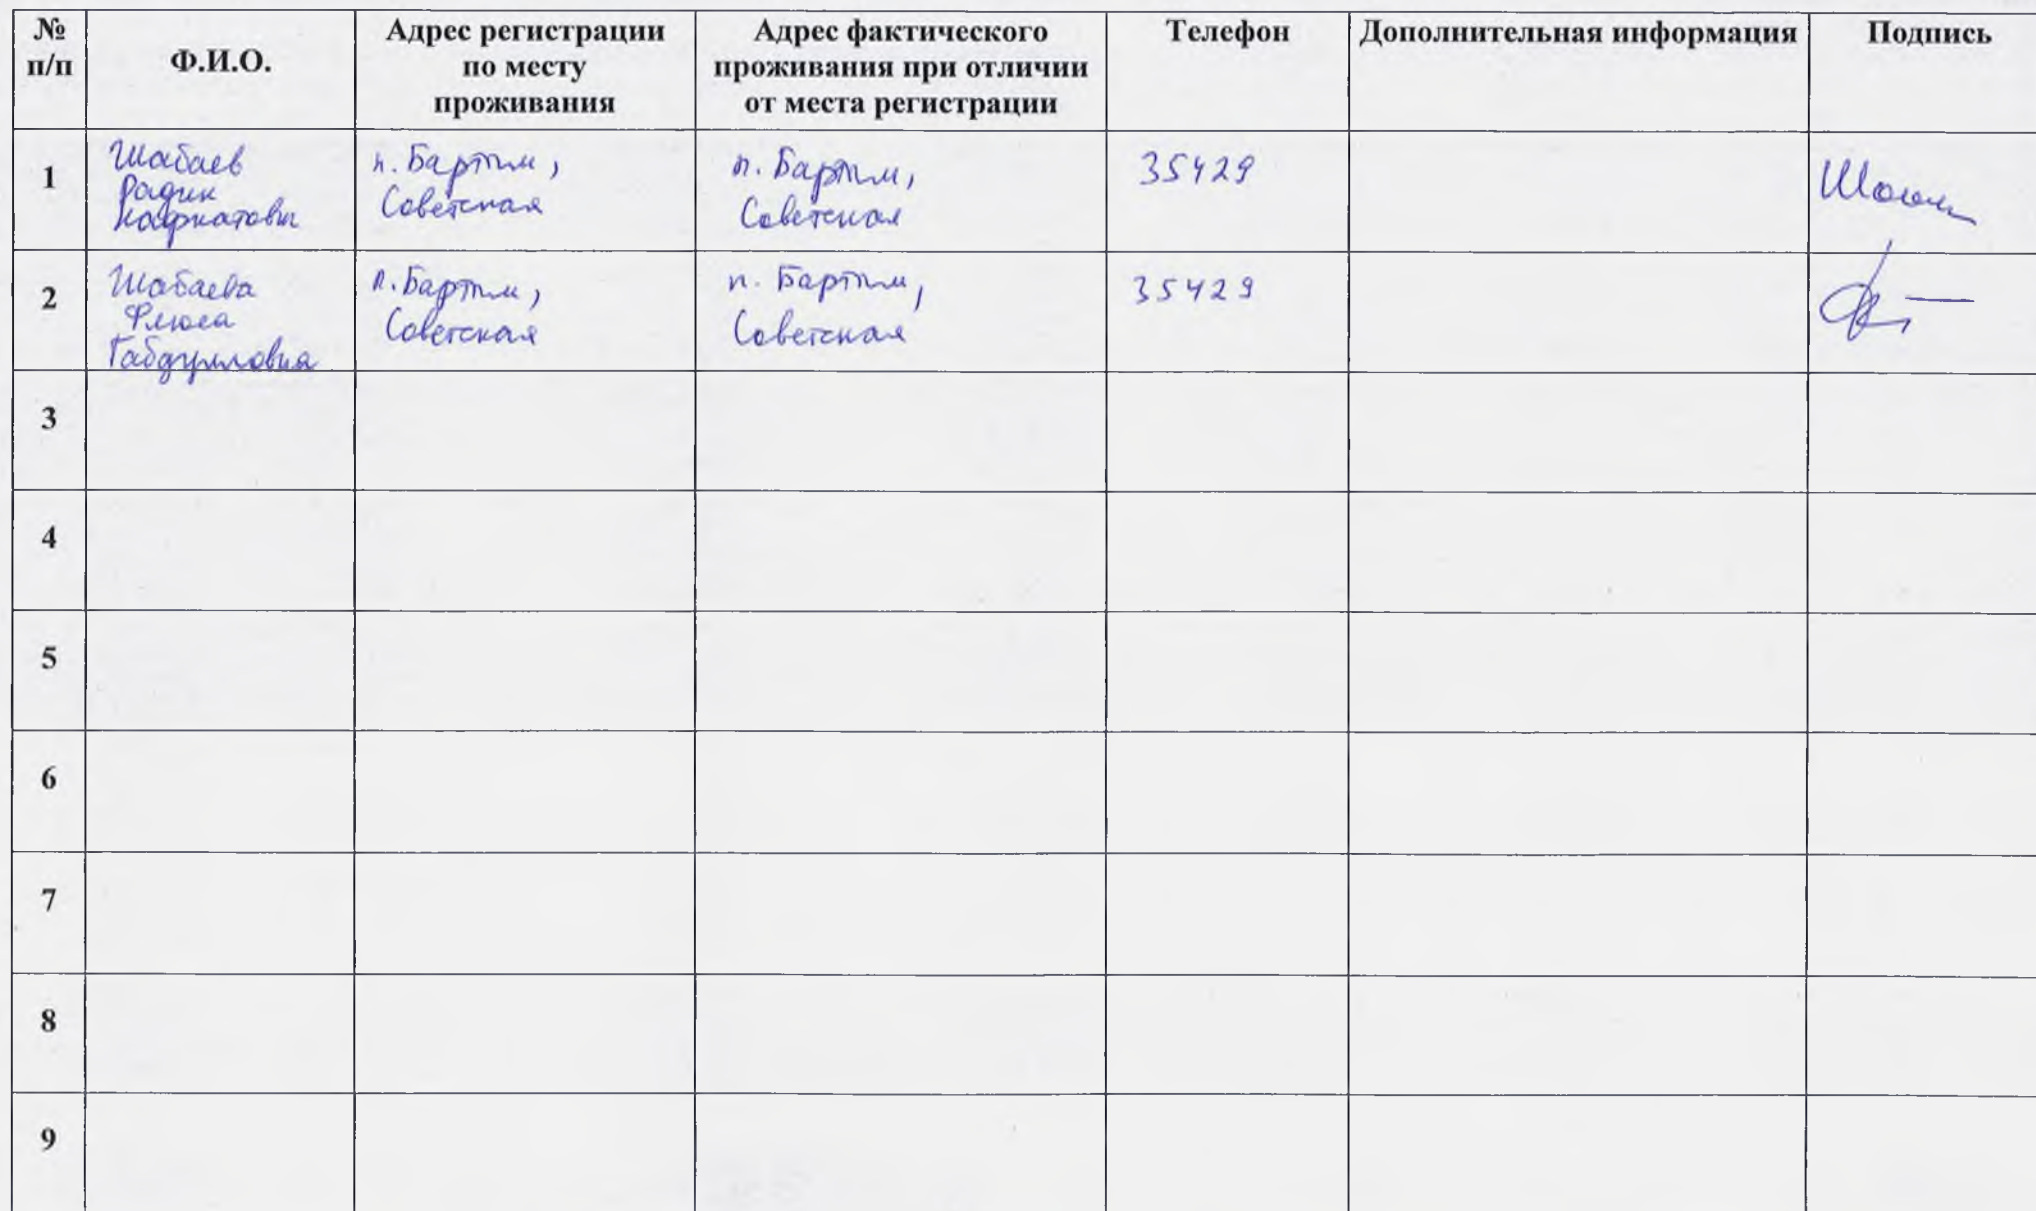 № п/п
Ф.И.О.
Адрес регистрации по месту проживания
Адрес фактического проживания при отличии от места регистрации
Телефон
Дополнительная информация
Подпись
1
Шабаев
Радик
п. Бартым,
Советская
п. Бартым,
Советская
35429
2
Шабаева
Флюса
п. Бартым,
Советская
п. Бартым,
Советская
35429
3
4
5
6
7
8
9